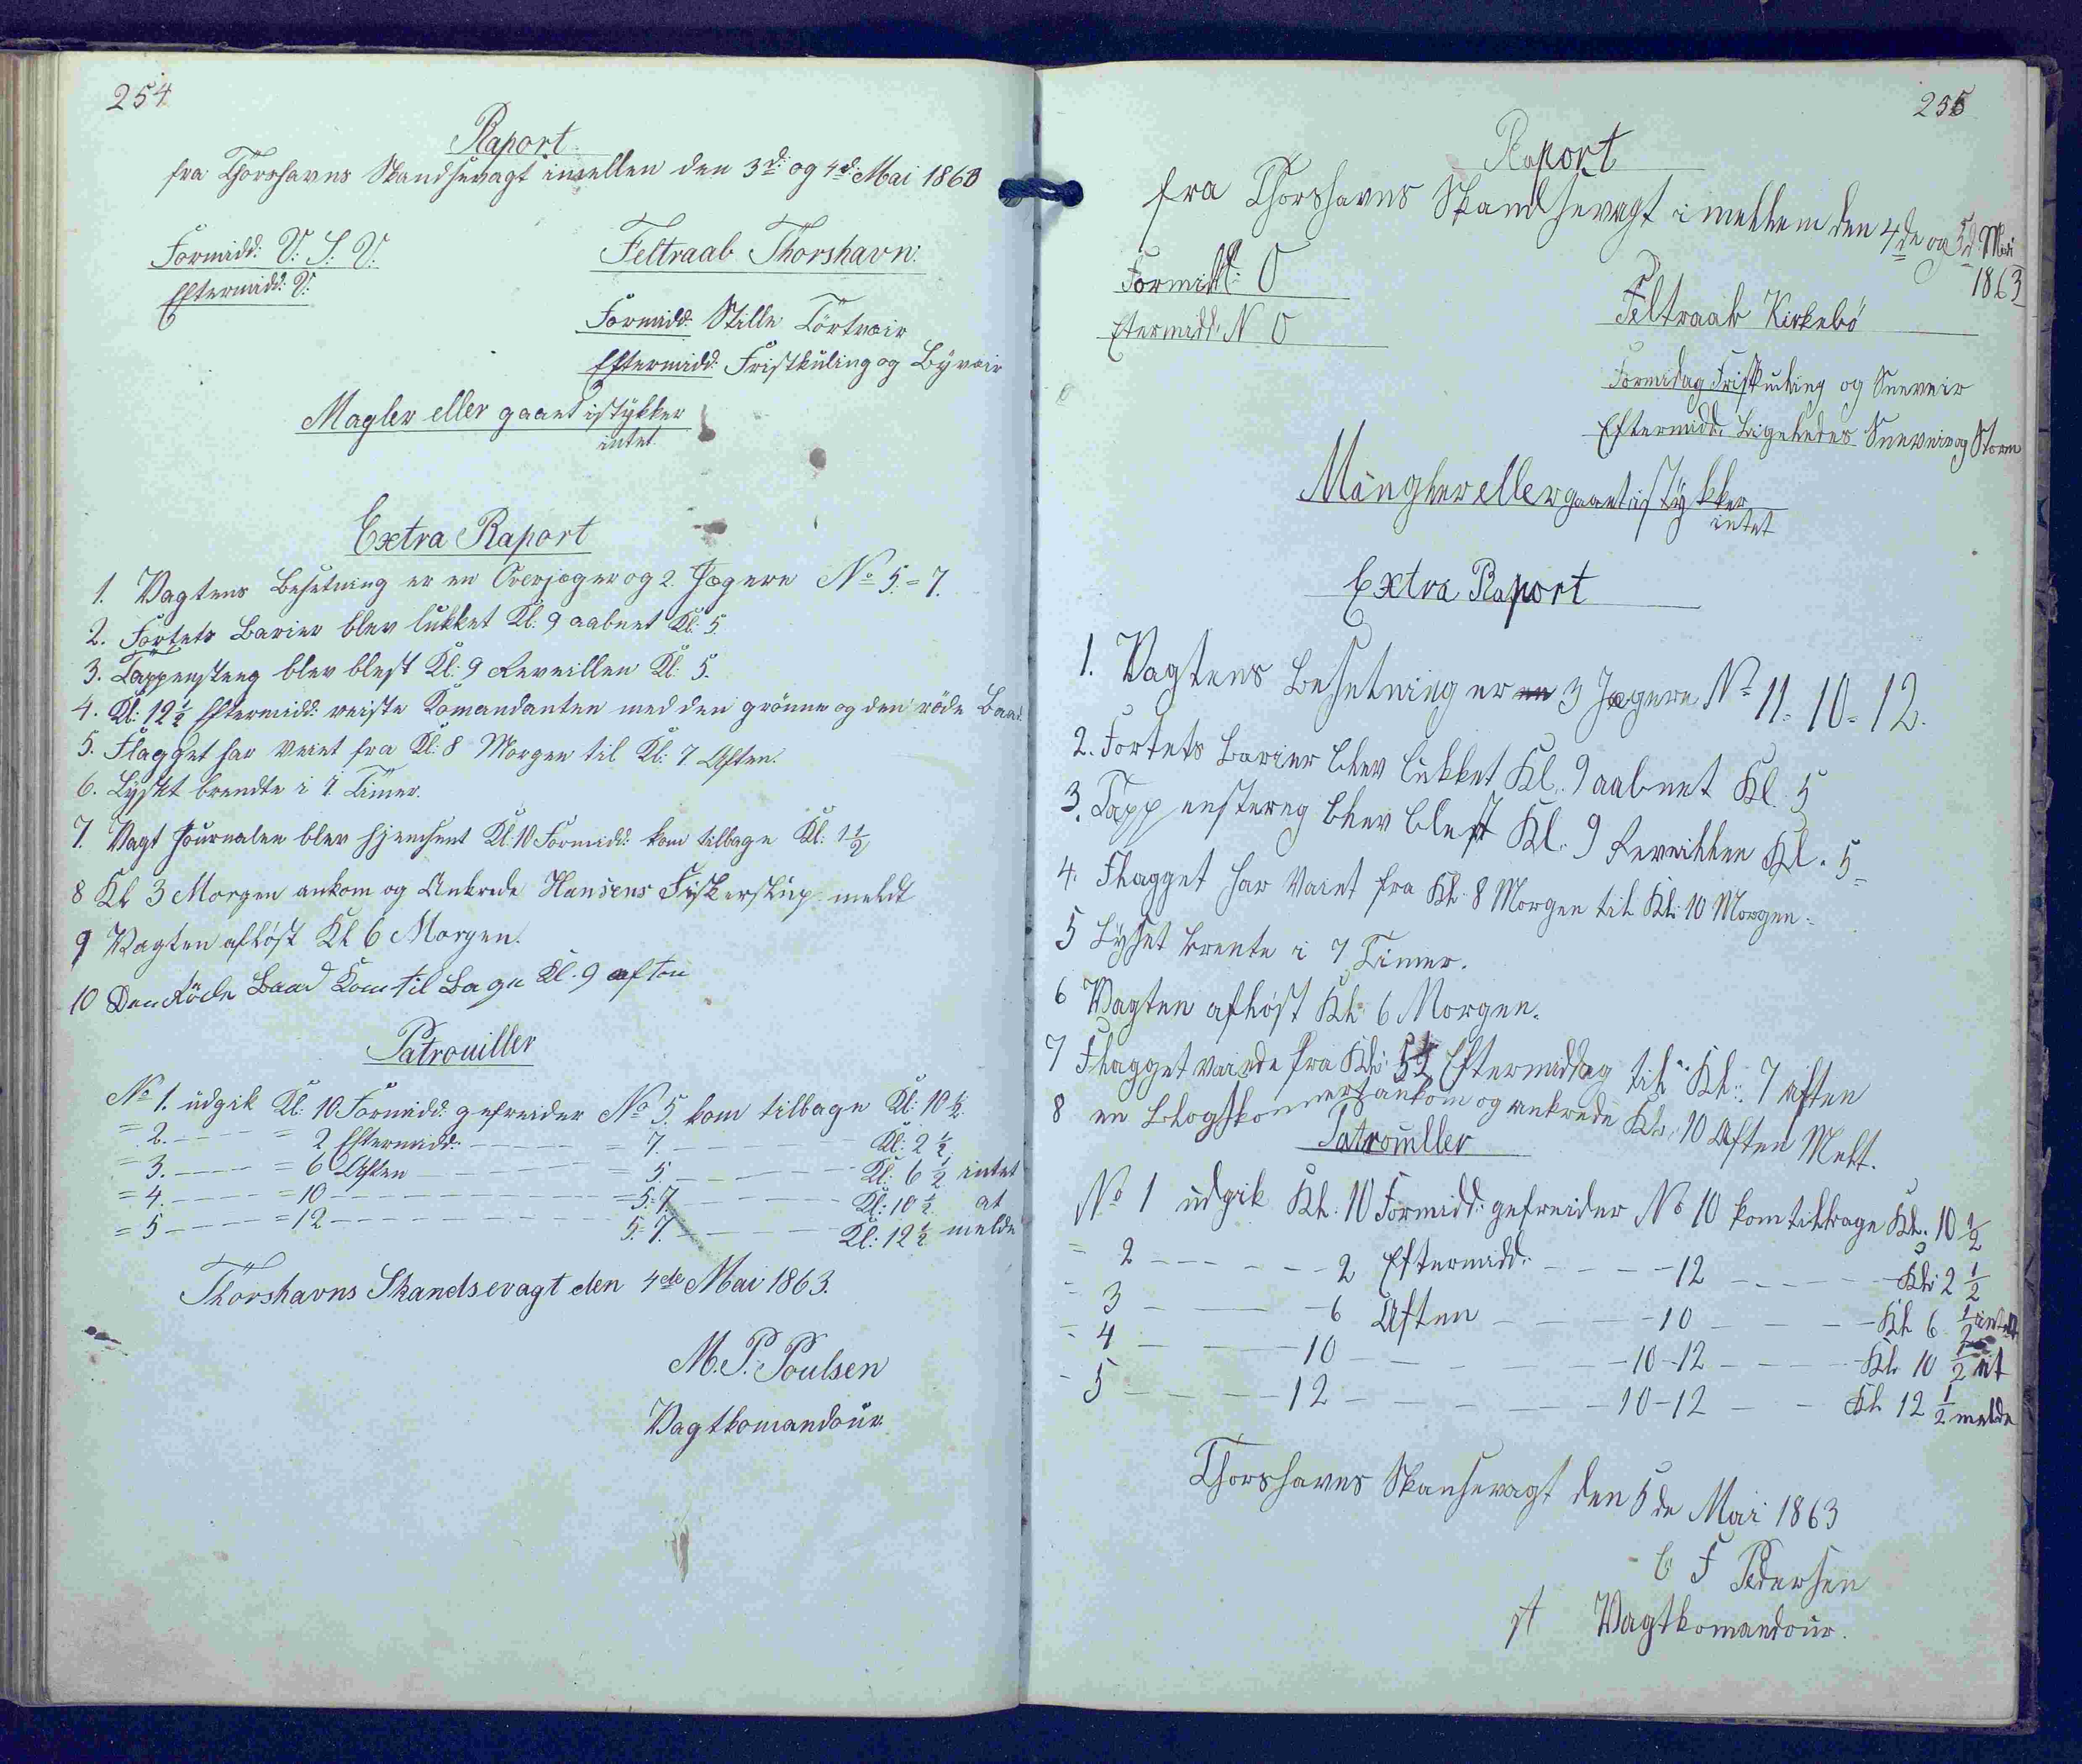 254
Raport
fra Thorshavns Skandsevagt imellen den 3d: og 4d: Mai 1863
Formidd: V. S. V.
Eftermidd: V.
Feltraab Thorshavn.
Formidd: Stille Törtvair
Eftermidd: Friskkuling og Byvair
Magler eller gaaet istykker
intet
Extra Raport
1. Vagtens Besetning er en Overjæger og 2 Jægere No 5. = 7.
2. Fortets Barier blev lukket Kl: 9 aabnet Kl: 5.
3. Tappensteng blev blest Kl: 9 Reveillen Kl: 5.
4. Kl: 12½ Eftermidd: reiste Komandanten med den grönne og den röde Baad
5. Flagget har vaiet fra Kl: 8 Morgen til Kl: 7 Aften.
6. Lyset brendte i 7 Timer.
7. Vagt Journalen blev hjemsent Kl. 10 Formidd: kom tilbage Kl: 1½
8 Kl 3 Morgen ankom og Ankrede Hansens Fiskerslup meldt
9 Vagten aflöst Kl 6 Morgen.
10 Den Röde Baad Kom til Bage Kl. 9 aften
Patrouiller
No 1. udgik Kl: 10 Formidd: gefreider No 5. kom tilbage Kl: 10½
= 2. - - - = 2 Eftermidd: - - - = 7. - - - Kl: 2½
= 3. - - - = 6 Aften - - - = 5. - - - Kl: 6½ intet
= 4. - - - = 10 - - - = 5.-7. - - - Kl: 10½ at
= 5 - - - = 12 - - - 5.-7. - - - Kl: 12½ melde
Thorshavns Skandsevagt den 4de Mai 1863.
M. P. Poulsen
Vagtkomandour.
255
Raport
fra Thorshavns Skandsevagt imellem den 4de og 5d Mai
1863
Formidd: O
Etermidd. N O
Feltraab Kirkebö
Formidag Friskuling og Sneveir
Eftermidd. Ligeledes Sneveir og Storm
Mangler eller gaaet istykker
intet
Extra Raport
1. Vagtens Besetning er en 3 Jægere No 11. 10 = 12.
2. Fortets Barier blev lukket Kl. 9 aabnet Kl. 5
3. Tappenstereg blev blest Kl. 9 Reveillen Kl. 5
4. Flagget har Vaiet fra Kl. 8 Morgen til Kl. 10 Morgen.
5 Lyset brente i 7 Timer.
6 Vagten aflöst Kl. 6 Morgen.
7 Flagget vaiede fra Kl. 5½ Eftermiddag til Kl: 7 aften
8 en Slogskonnert ankom og ankrede Kl. 10 Aften Melt.
Patrouiller
No 1 udgik Kl. 10 Formidd: gefreider No 10 kom tilbage Kl. 10½
= 2 - - - 2 Eftermidd: - - - 12 - - - Kl: 2½
= 3 - - - 6 Aften - - - 10 - - - Kl 6½ intet
= 4 - - - 10 - - - 10-12 - - - Kl 10½ at
- 5 - - - 12 - - - 10-12 - - Kl 12½ melde
Thorshavns Skansevagt den 5de Mai 1863
F Pedersen
Vagtkomandour.